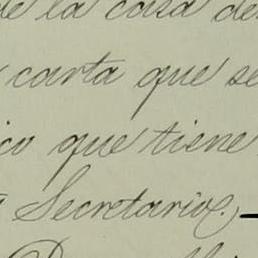 de la casa de
carta que se
que tiene
Secretario,